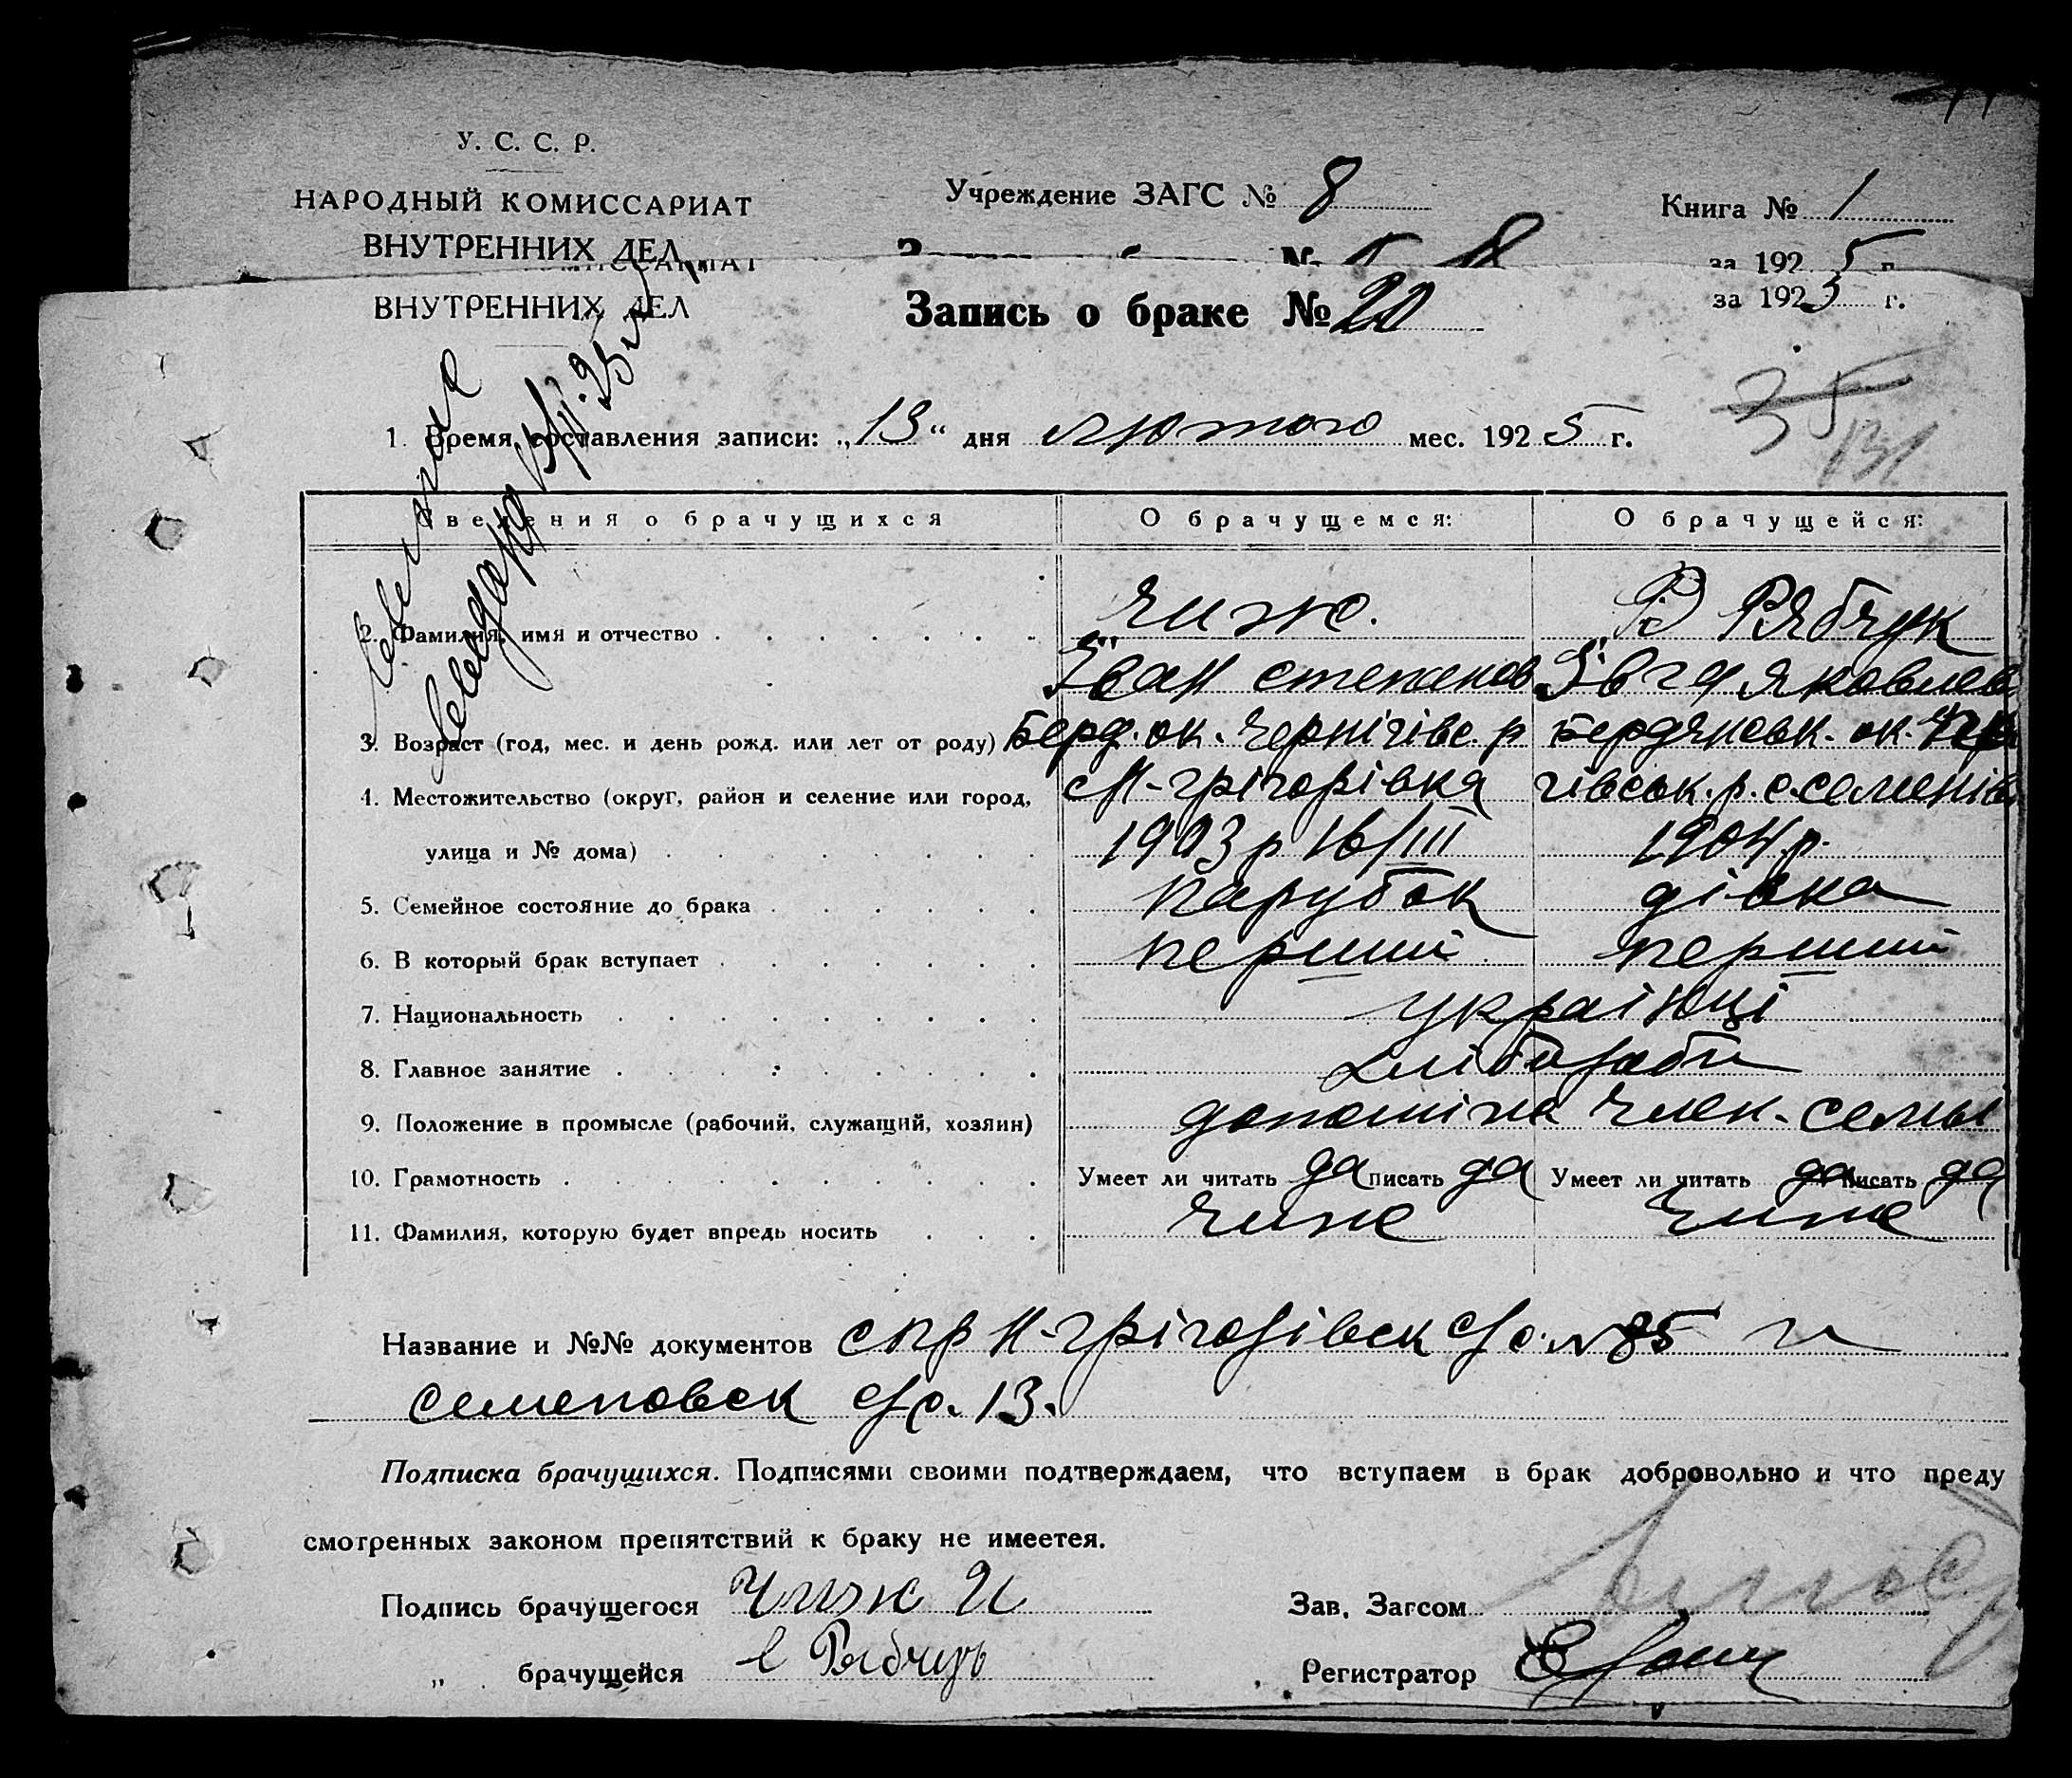 У. С. С. Р.
НАРОДНЫЙ КОМИССАРИАТ
ВНУТРЕННИХ ДЕЛ
Учреждение ЗАГС № 8
Книга № 1
за 1925 г.
ВНУТРЕННИХ ДЕЛ
Запись о браке № 20
за 1925 г.
35
131
1. Время составления записи: „13“ дня лютого мес. 1925 г.
Сведения о брачущихся О брачущемся: О брачущейся:
2. Фамилия, имя и отчество Чиж. Рябчук
Іван степанов Явгя Яковлев
3. Возраст (год, мес. и день рожд. или лет от роду) Берд. ок. Чернігівс. р Бердянськ. ок. Чер
4. Местожительство (округ, район и селение или город, с Н-Грігорівка гівськ. р. с. семенів
улица и № дома) 1903 р 16/III 1904 р.
5. Семейное состояние до брака парубок дівка
6. В который брак вступает перший перший
7. Национальность українці
8. Главное занятие хлібороби
9. Положение в промысле (рабочий, служащий, хозяин) допоміжн член. семьі
10. Грамотность Умеет ли читать да писать да Умеет ли читать да писать да
11. Фамилия, которую будет впредь носить Чиж Чиж
Название и №№ документов спр Н-Грігорівськ с/р. № 85 и
семеновск с/р. 13.
Подписка брачущихся. Подписями своими подтверждаем, что вступаем в брак добровольно и что преду
смотренных законом препятствий к браку не имеетея.
Подпись брачущегося Чиж И Зав. Загсом
„ брачущейся Е Рябчук Регистратор